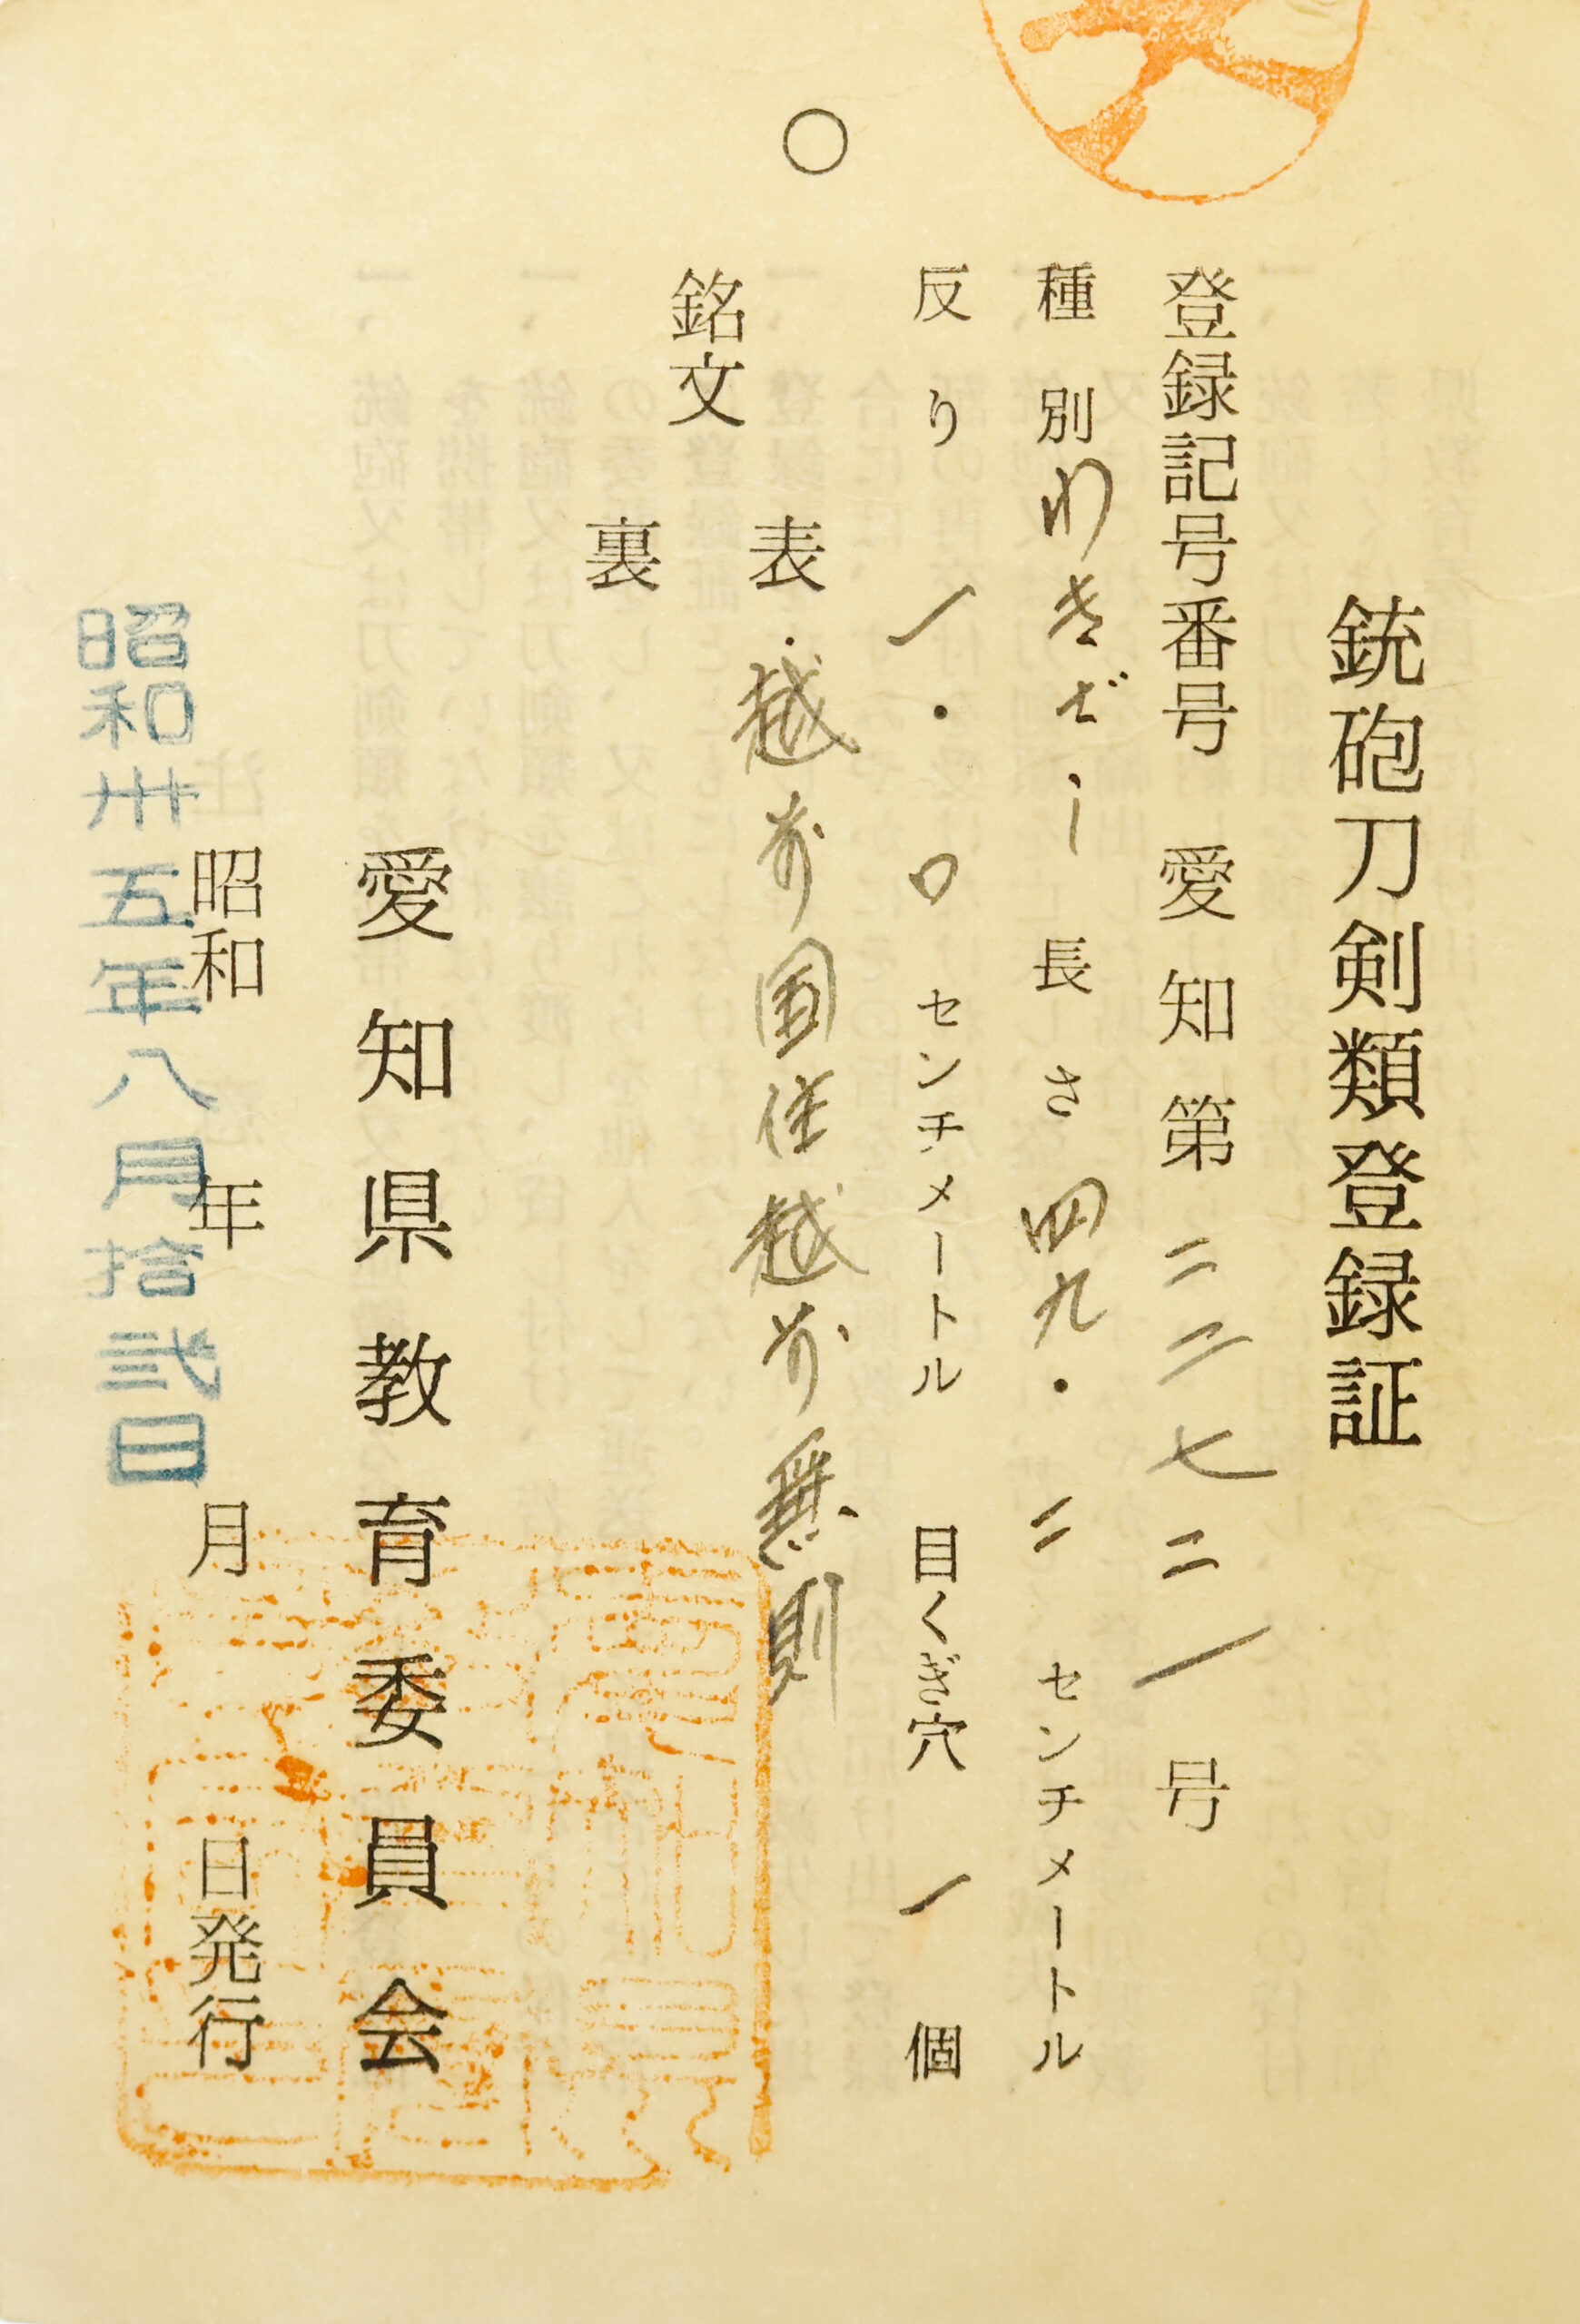 銃砲刀剣類登録証
登録記号番号 愛知第二二七二一号
種別 わきざし 長さ 四九・二 センチメートル
反り 一・〇 センチメートル 目くぎ穴 一 個
銘文
表・越前国住越前兼則
裏
愛知県教育委員会
昭和 年 月 日発行
昭和卅五年八月拾弐日